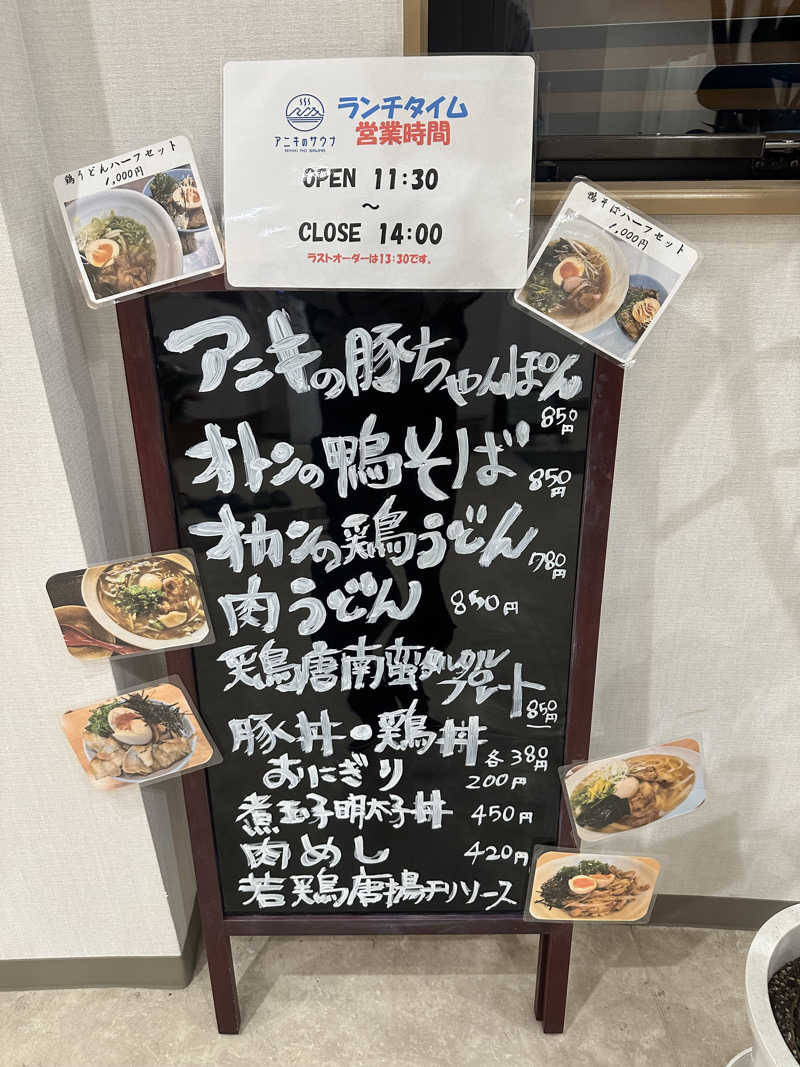 ランチタイム
営業時間
アニキのサウナ
OPEN 11:30
～
CLOSE 14:00
ラストオーダーは13:30です。
鶏うどんハーフセット
1,000円
鴨そばハーフセット
1,000円
アニキの豚ちゃんぽん
850円
オトンの鴨そば 850円
オカンの鶏うどん 780円
肉うどん 850円
鶏唐南蛮タルタルプレート 850円
豚丼・鶏丼 各380円
おにぎり 200円
煮玉子明太子丼 450円
肉めし 420円
若鶏唐揚チリソース